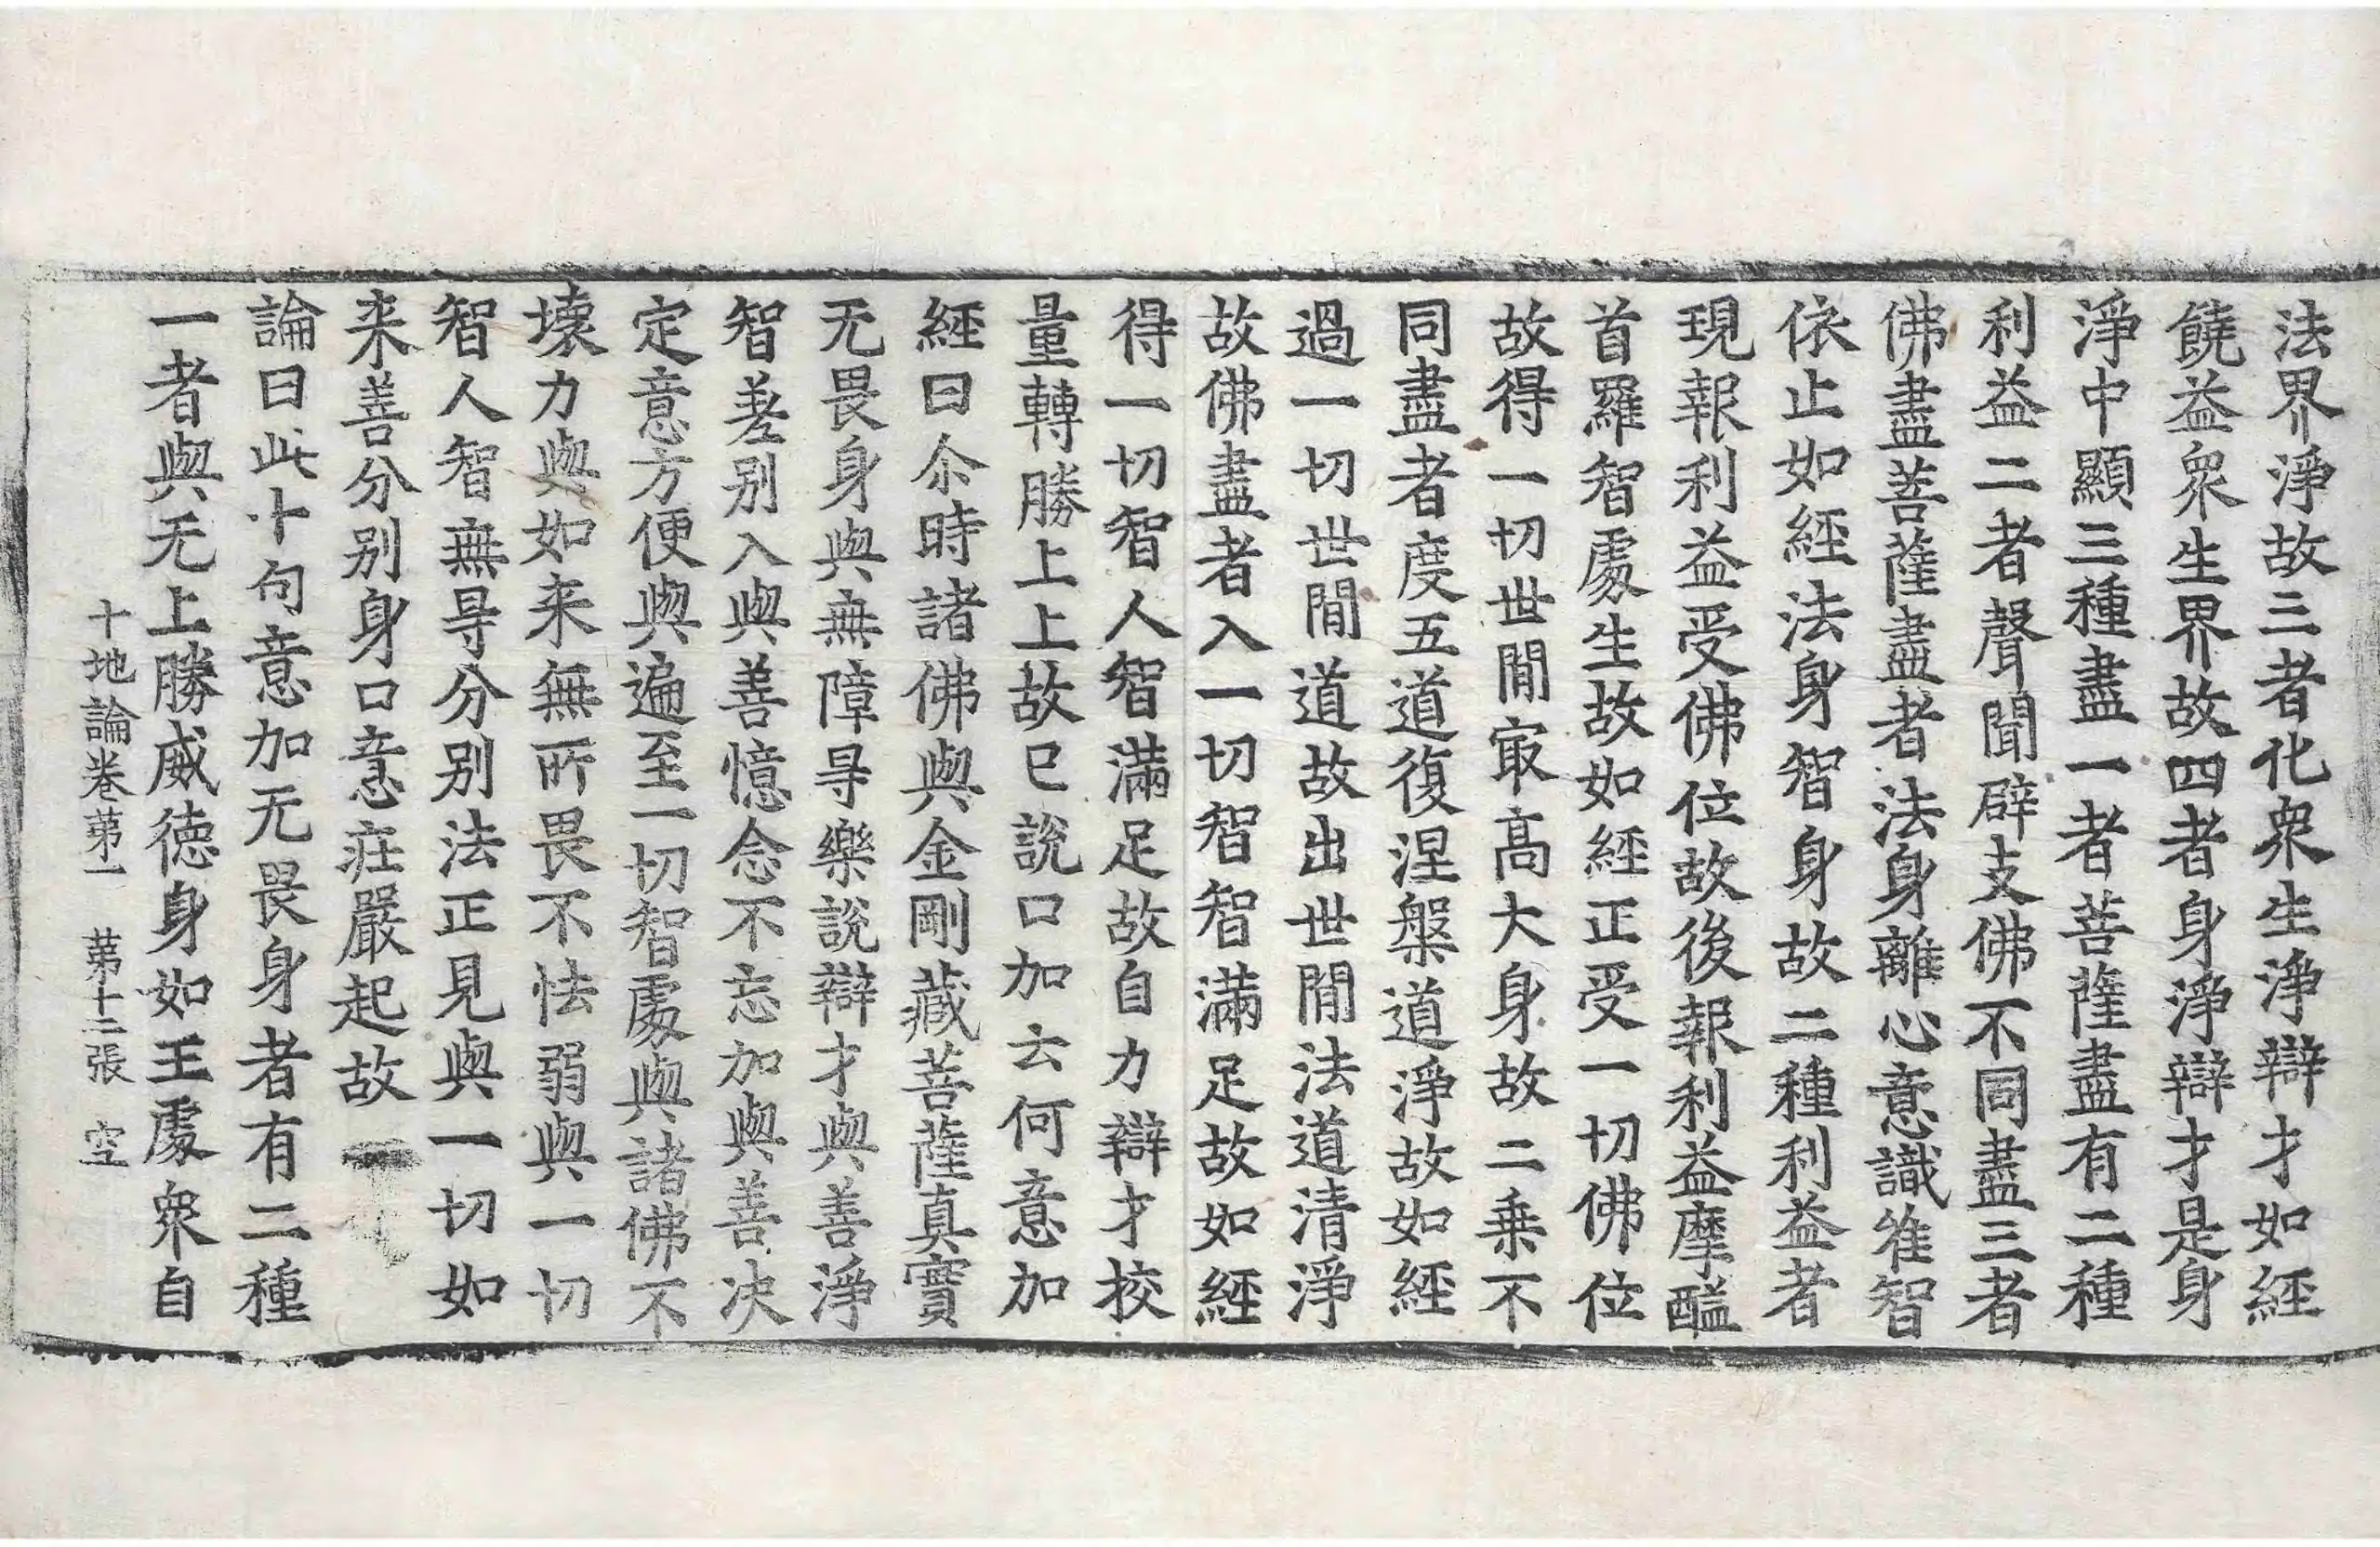 法界淨故三者化衆生淨辯才如經
饒益衆生界故四者身淨辯才是身
淨中顯三種盡一者菩薩盡有二種
利益二者聲聞辟支佛不同盡三者
佛盡菩薩盡者法身離心意識唯智
依止如經法身智身故二種利益者
現報利益受佛位故後報利益摩醯
首羅智處生故如經正受一切佛位
故得一切世間冣高大身故二乗不
同盡者度五道復涅槃道淨故如經
過一切世間道故出世間法道清淨
故佛盡者入一切智智滿足故如經
得一切智人智滿足故自力辯才挍
量轉勝上上故已說口加云何意加
經曰尒時諸佛與金剛藏菩薩真實
无畏身與無障㝵樂說辯才與善淨
智差别入與善憶念不忘加與善决
定意方便與遍至一切智處與諸佛不
壞力與如来無所畏不怯弱與一切
智人智無㝵分别法正見與一切如
来善分别身口意莊嚴起故
論曰此十句意加无畏身者有二種
一者與无上勝威徳身如王處衆自
十地論卷苐一　苐十二張　空